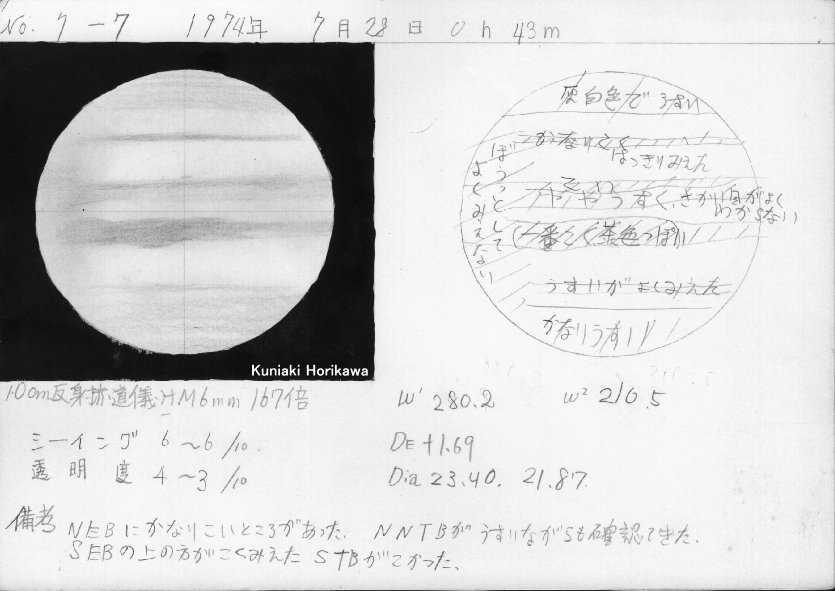 No. 7-7 1974年 7月28日 0h 43m
灰白色でうすい
かなりこく
はっきりみえた
ぼうっとして
よくみえない
ややうすく、きかい色がよく
わからない
(一番こく茶色っぽい)
うすいがよくみえた
かなりうすい
Kuniaki Horikawa
10cm反射赤道儀 HM6mm 167倍
W¹ 280.2 W² 210.5
シーイング 6~6/10.
DE +1.69
透明度 4~3/10
Dia 23.40. 21.87.
備考 NEBにかなりこいところがあった. NNTBがうすいながらも確認できた.
SEBの上の方がこくみえた STBがこかった.